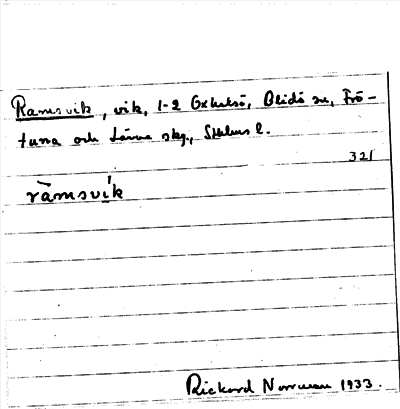 Ramsvik, vik, 1-2 Oxhalsö, Blidö sn, Frö-
tuna och Länna skg., Sthlms l.
321
rāmsvi̍k
Rickard Norrman 1933.